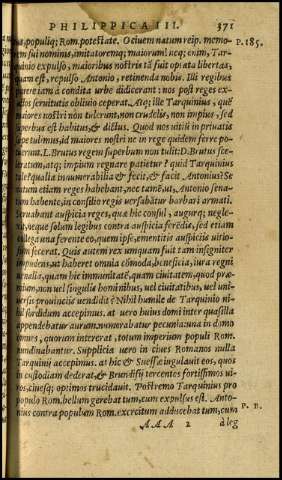 PHILIPPICA III. 371
us, populiq; Rom. potestate. O ciuem natum reip. memo- P. 185.
rem sui nominis, imitatoremq; maiorum! neq; enim, Tar-
quinio expulso, maioribus nostris tā fuit optata libertas,
quam est, repulso Antonio, retinenda nobis. Illi regibus
parere iam à condita urbe didicerant: nos post reges ex-
actos seruitutis obliuio ceperat. Atq; ille Tarquinius, quē
maiores nostri non tulerunt, non crudelis, non impius, sed
superbus est habitus, & dictus. Quod nos uitiū in priuatis
sæpe tulimus, id maiores nostri ne in rege quidem ferre po-
tuerunt. L. Brutus regem superbum non tulit: D. Brutus sce-
leratum, atq; impium regnare patietur? quid Tarquinius
tale? qualia innumerabilia & fecit, & facit Antonius? Se
natum etiam reges habebant, nec tamē ut, Antonio sena-
tum habente, in consilio regis uersabātur barbari armati.
Seruabant auspicia reges, quæ hic consul, augurq; negle-
xit, neque solum legibus contra auspicia ferēdis, sed etiam
collega una ferente eo, quem ipse, ementitis auspicijs uitio-
sum fecerat. Quis autem rex umquam fuit tam insigniter
impudens, ut haberet omnia cōmoda, beneficia, iura regni
uenalia, quam hic immunitatē, quam ciuitatem, quod præ-
mium, non uel singulis hominibus, uel ciuitatibus, uel uni-
uersis prouincijs uendidit? Nihil humile de Tarquinio ni-
hil sordidum accepimus. at uero huius domi inter quasilla
appendebatur aurum. numerabatur pecunia: una in domo
omnes, quorum intererat, totum imperium populi Rom.
nundinabantur. Supplicia uero in ciues Romanos nulla
Tarquinij accepimus. at hic & Suessæ iugulauit eos, quos
in custodiam dederat, & Brundisij tercentos fortissimos ui-
ros, ciuesq; optimos trucidauit. Postremo Tarquinius pro
populo Rom. bellum gerebat tum, cum expulsus est. Anto-
nius contra populum Rom. exercitum adducebat tum, cum P. B.
AAA 2 à leg